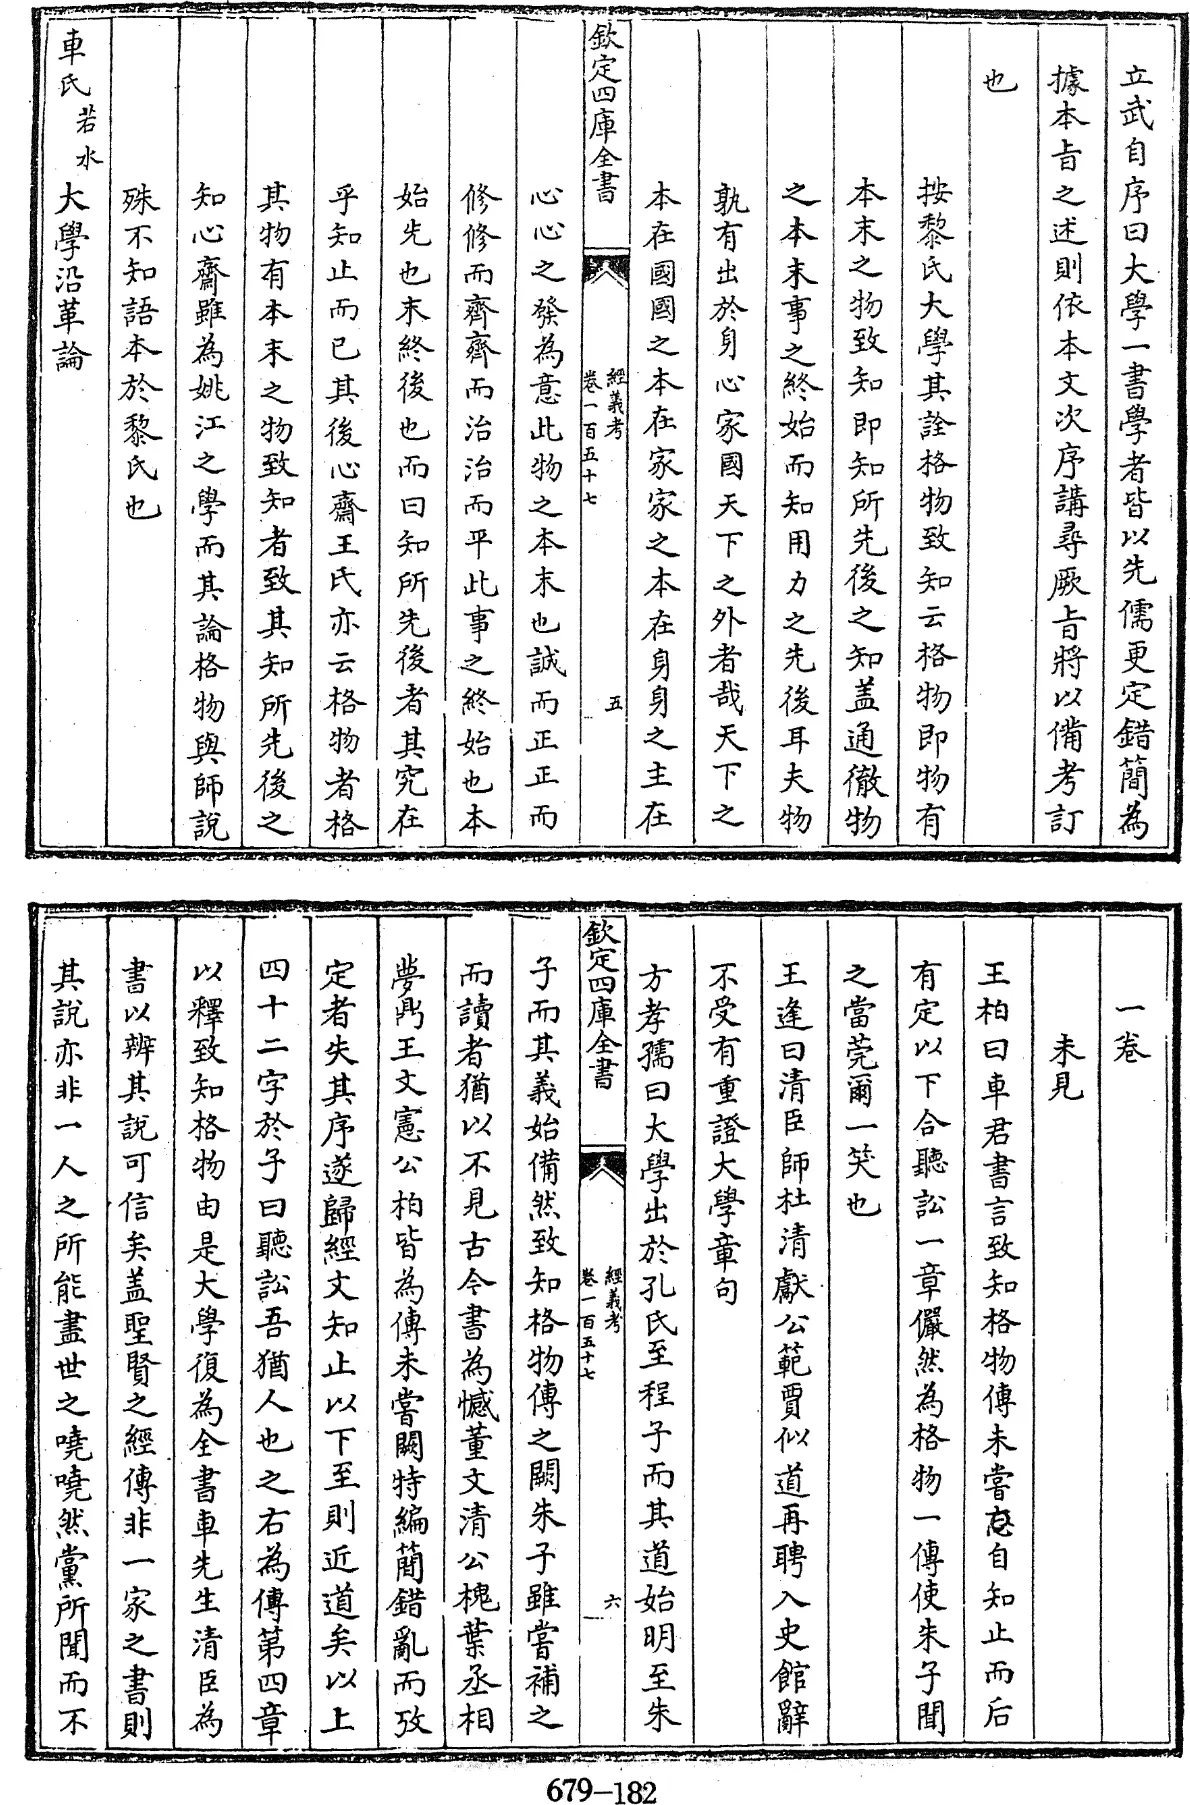 立武自序曰大學一書學者皆以先儒更定錯簡為
據本㫖之述則依本文次序講尋厥㫖將以備考訂
也
按黎氏大學其詮格物致知云格物即物有
本末之物致知即知所先後之知盖通徹物
之本末事之終始而知用力之先後耳夫物
孰有出於身心家國天下之外者哉天下之
本在國國之本在家家之本在身身之主在
欽定四庫全書
經義考
卷一百五十七
五
心心之發為意此物之本末也誠而正正而
修修而齊齊而治治而平此事之終始也本
始先也末終後也而曰知所先後者其究在
乎知止而已其後心齋王氏亦云格物者格
其物有本末之物致知者致其知所先後之
知心齋雖為姚江之學而其論格物與師說
殊不知語本於黎氏也
車氏若水大學沿革論
一卷
未見
王柏曰車君書言致知格物傳未嘗亡自知止而后
有定以下合聽訟一章儼然為格物一傳使朱子聞
之當莞爾一笑也
王逢曰清臣師杜清獻公範賈似道再聘入史館辭
不受有重證大學章句
方孝孺曰大學出於孔氏至程子而其道始明至朱
欽定四庫全書
經義考
卷一百五十七
六
子而其義始備然致知格物傳之闕朱子雖嘗補之
而讀者猶以不見古今書為憾董文清公槐葉丞相
夢鼎王文憲公柏皆為傳未嘗闕特編簡錯亂而攷
定者失其序遂歸經文知止以下至則近道矣以上
四十二字於子曰聽訟吾猶人也之右為傳第四章
以釋致知格物由是大學復為全書車先生清臣為
書以辨其說可信矣盖聖賢之經傳非一家之書則
其說亦非一人之所能盡世之嘵嘵然黨所聞而不
679-182